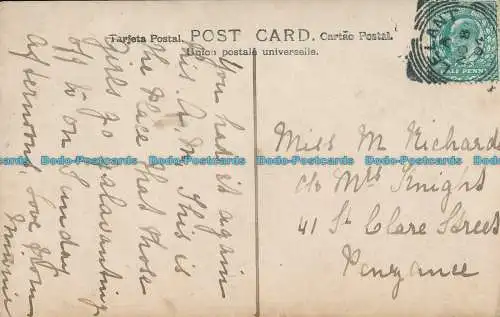 Tarjeta Postal. POST CARD. Cartão Postal.
Union postale universelle.
You had it again
this A.M. This is
the place that those
girls go galavanting
off to on Sunday
afternoons, Love from
Minnie
Miss M Richards
c/o Mrs Knight
41 St Clare Street
Penzance
LELANT
HALF PENNY
Dodo-Postcards Dodo-Postcards Dodo-Postcards Dodo-Postcards Dodo-Postcards